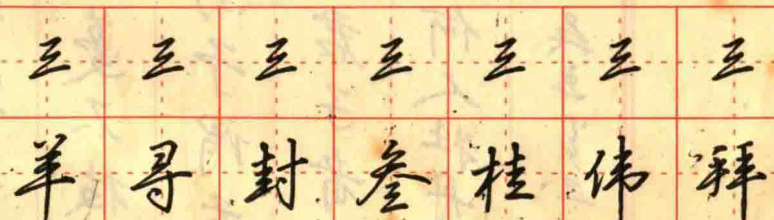 三 三 三 三 三 三 三
羊 寻 封 叁 桂 伟 拜